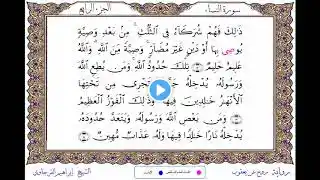 سورة النساء
الجزء الرابع
ذَٰلِكَ فَهُمْ شُرَكَآءُ فِى ٱلثُّلُثِ مِنۢ بَعْدِ وَصِيَّةٍ
يُوصِى بِهَآ أَوْ دَيْنٍ غَيْرَ مُضَآرٍّ وَصِيَّةً مِّنَ ٱللَّهِ وَٱللَّهُ
عَلِيمٌ حَلِيمٌ تِلْكَ حُدُودُ ٱللَّهِ وَمَن يُطِعِ ٱللَّهَ
وَرَسُولَهُۥ يُدْخِلْهُ تَجْرِى مِن تَحْتِهَا
ٱلْأَنْهَٰرُ خَٰلِدِينَ فِيهَا وَذَٰلِكَ ٱلْفَوْزُ ٱلْعَظِيمُ
وَمَن يَعْصِ ٱللَّهَ وَرَسُولَهُۥ وَيَتَعَدَّ حُدُودَهُۥ
يُدْخِلْهُ نَارًا خَٰلِدًا فِيهَا وَلَهُۥ عَذَابٌ مُّهِينٌ
رواية عن يعقوب
الشيخ إبراهيم